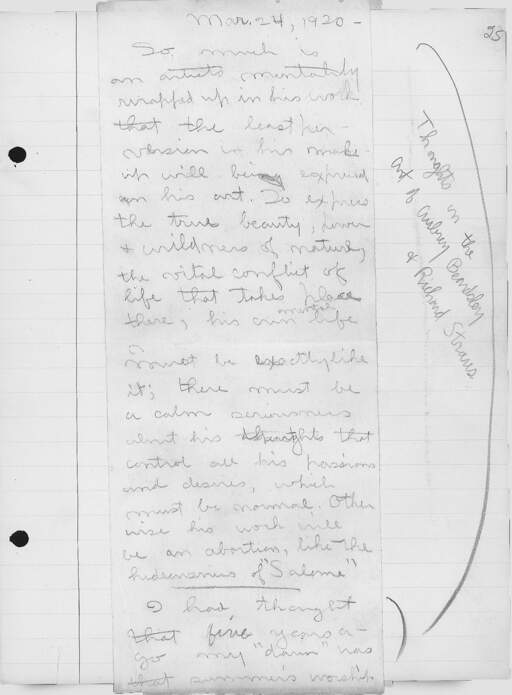 25
Mar. 24, 1920 -
So much is
an artists mentality
wrapped up in his work
that the least per-
version in his make-
up will be expressed
in his art. To express
the true beauty, power
& wildness of nature,
the vital conflict of
life that takes place
there, his own life
must be exactly like
it; there must be
a calm seriousness
about his thoughts that
control all his passions
and desires, which
must be normal. Other
wise his work will
be an abortion, like the
hideousness of "Salome"
I had thought
that five years a-
go my "dawn" was
that summer's worship
Thoughts in the
art of Aubrey Beardsley
& Richard Straus